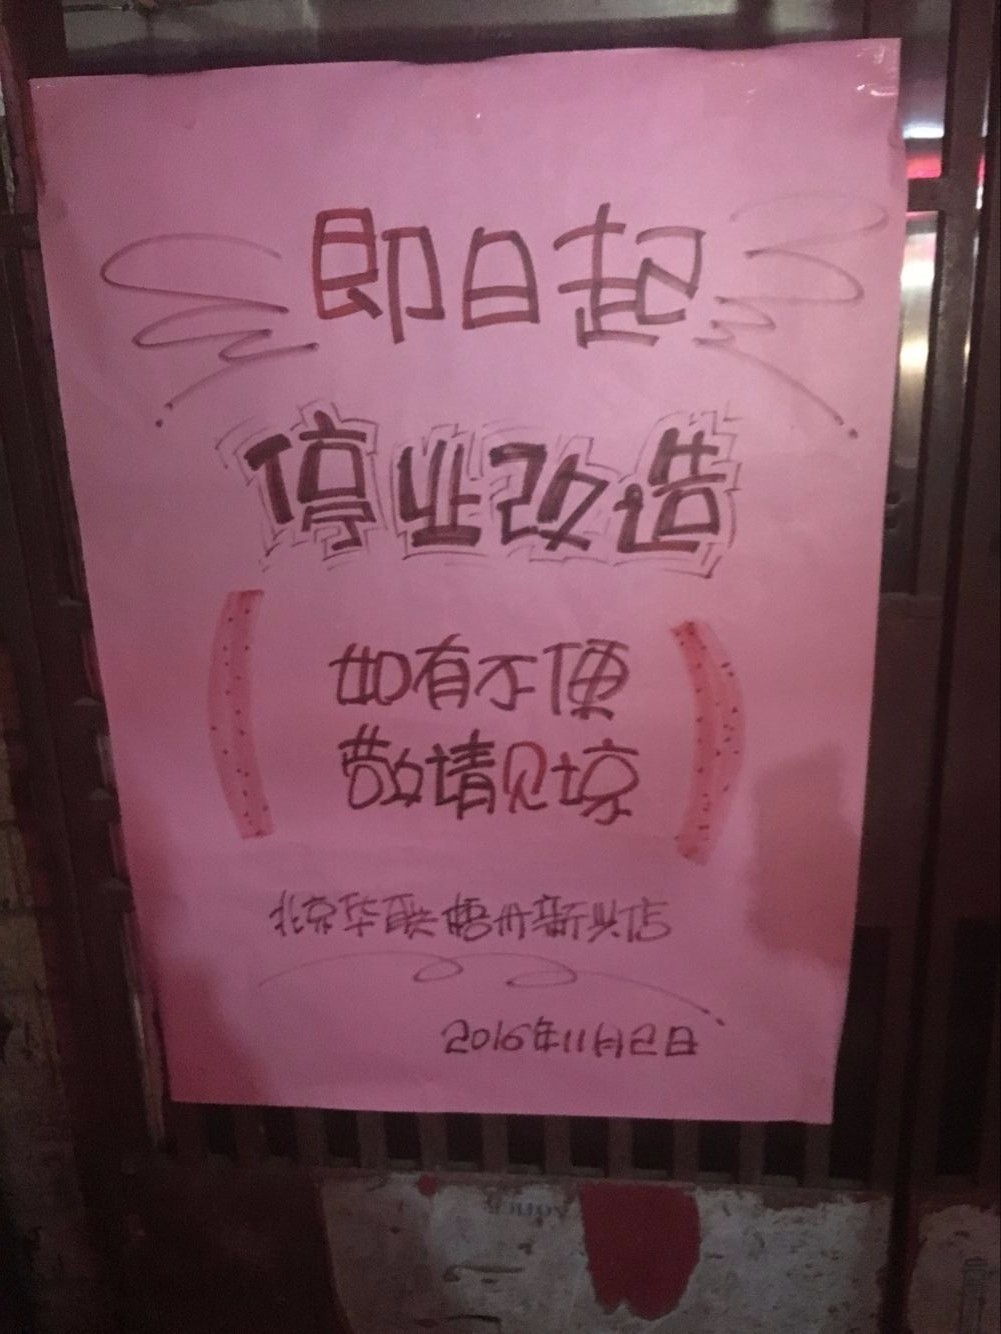 即日起
停业改造
如有不便
敬请见谅
北京华联梧州新兴店
2016年11月2日